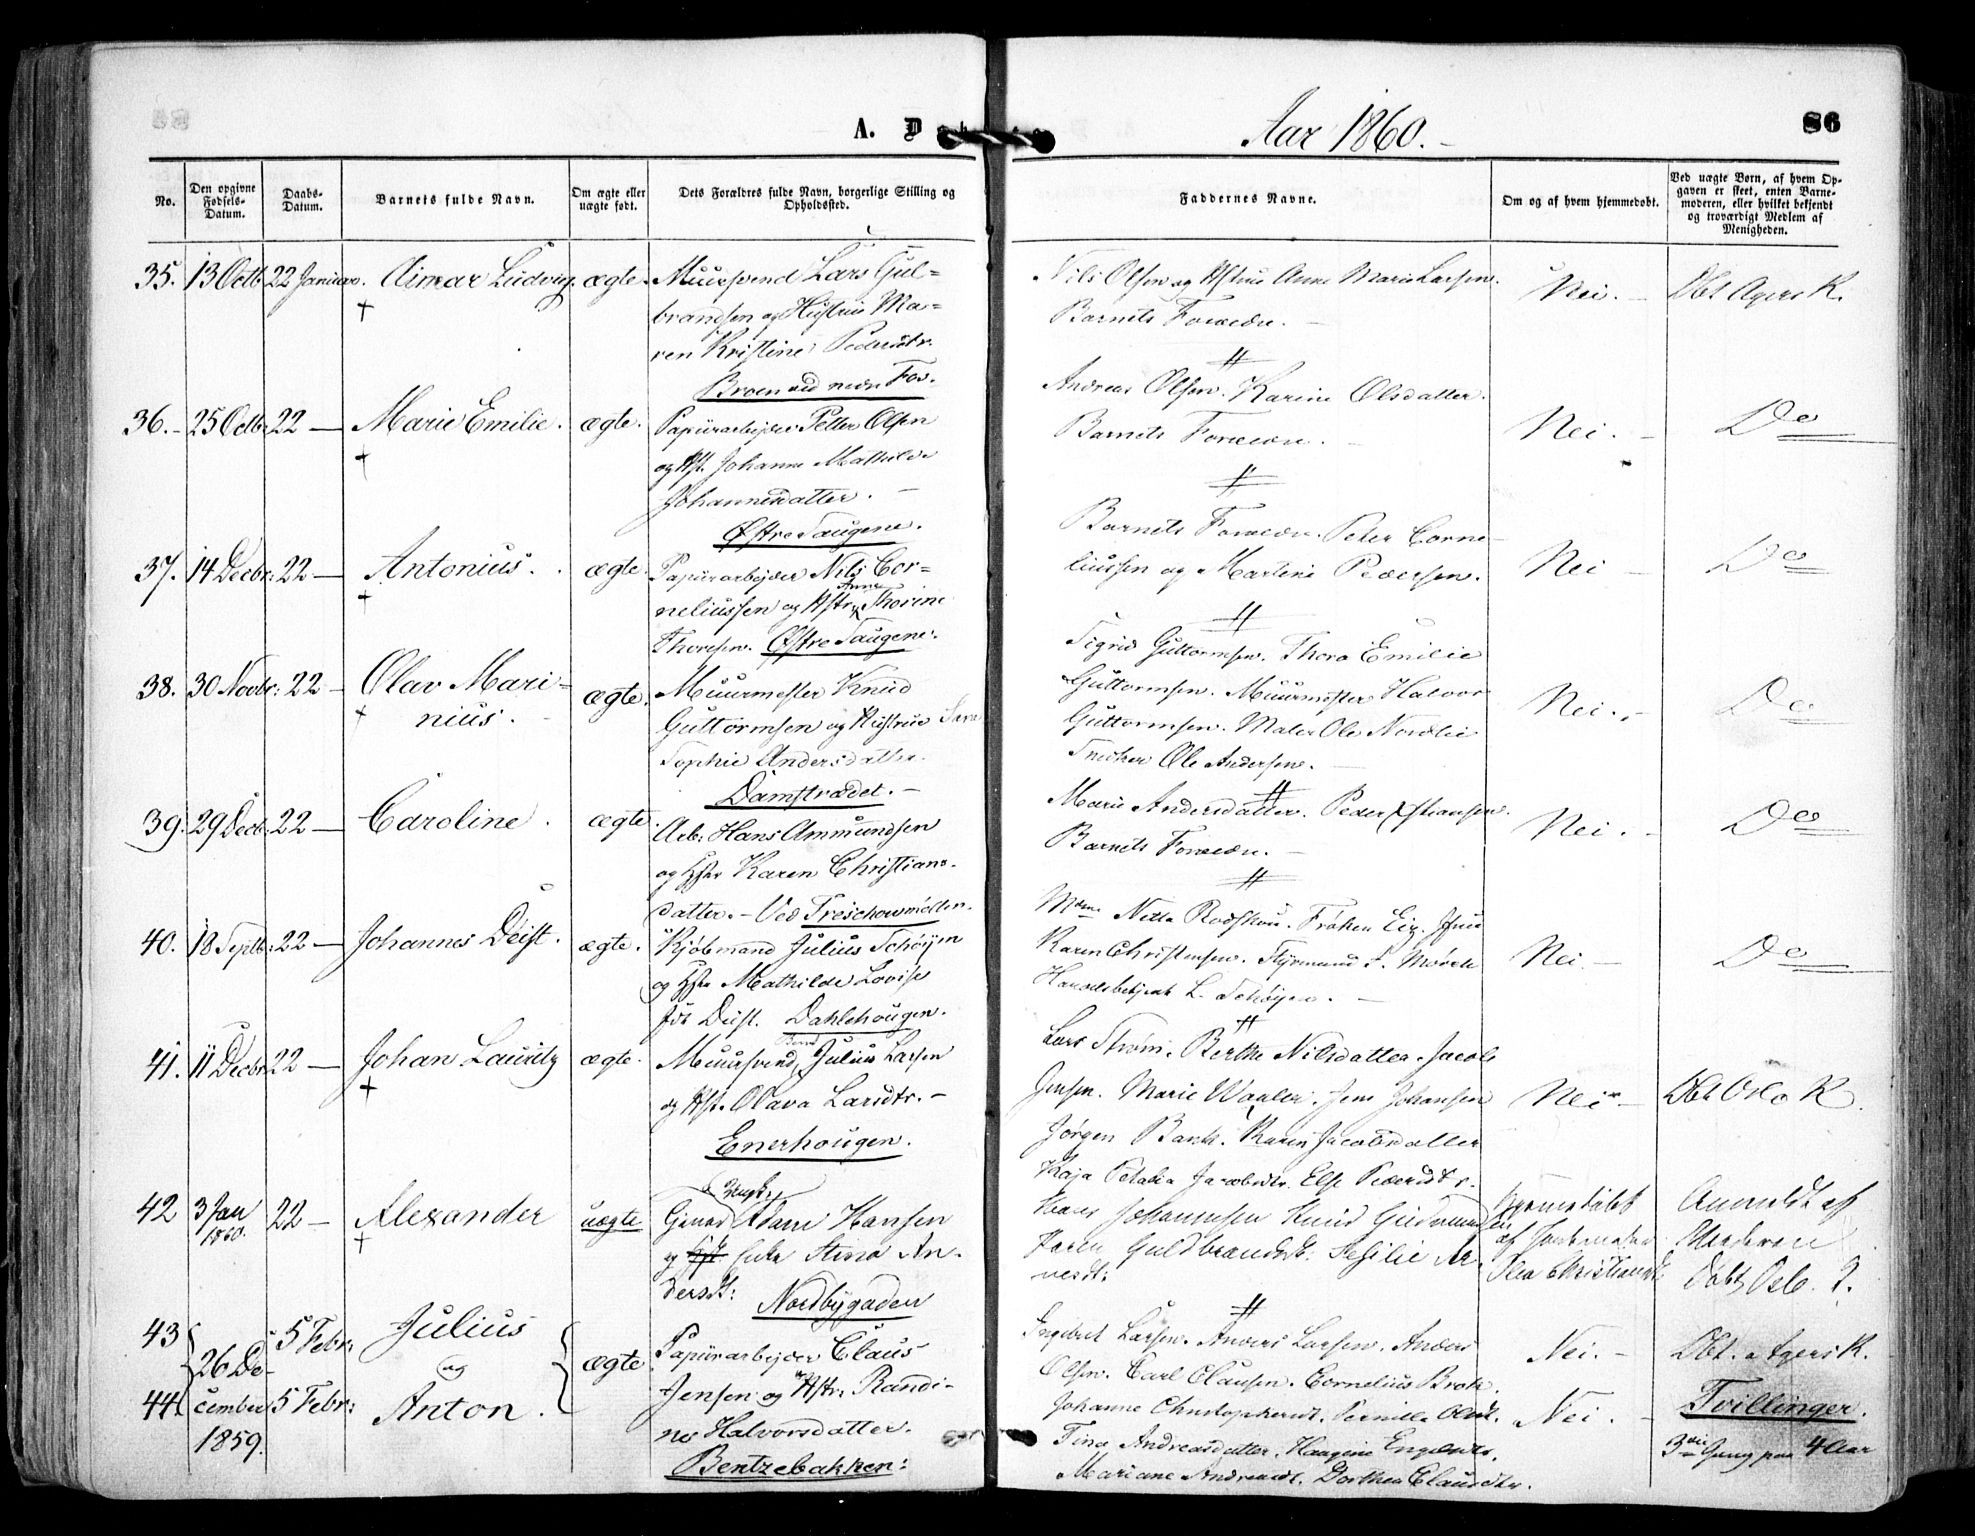 A. D
Aar 1860.
86
No.
Den opgivne Fødsels-Datum.
Daabs-Datum.
Barnets fulde Navn.
Om ægte eller uægte født.
Dets Forældres fulde Navn, borgerlige Stilling og Opholdssted.
Faddernes Navne.
Om og af hvem hjemmedøbt.
Ved uægte Børn, af hvem Opgaven er skeet, enten Barnemoderen, eller hvilket bekjendt og troværdigt Medlem af Menigheden.
35. 13 Octb 22 Januar. Aimar Ludvig. ægte. Muursvend Lars Gul-
brandsen og Hustrue Ma-
ren Kristine Pedersdtr.
Broen ved nedre Fos.
Nils Olsen og Hstrue Anne Marie Larsen.
Barnets Forældre.
Nei. Dbt Agers K.
36. 25 Octb. 22 — Marie Emilie. ægte. Papiirarbeider Petter Olsen
og Hst. Johanne Mathilde
Johannesdatter.
Østre Taugene.
Andreas Olsen. Karine Olsdatter.
Barnets Forældre.
Nei. Do
37. 14 Decbr: 22 — Antonius. ægte. Papiirarbejder Nils Cor-
neliussen og Hstr. Anne Thorine
Thoresen. Østre Taugene.
Barnets Forældre. Peter Corne-
liussen og Martine Pedersen.
Nei Do
38. 30 Novbr: 22 — Olav Mari-
nius. ægte. Muurmester Knud
Guttormsen og Hustrue Sara
Sophie Andersdatter.
Damstrædet.
Sigrid Guttormsen. Thora Emilie
Guttormsen. Muurmester Halvor
Guttormsen. Maler Ole Nordlie
Snedker Ole Andersen.
Nei. Do
39. 29 Decb. 22 — Caroline. ægte. Arb. Hans Ammundsen
og Hstr Karen Christians-
datter. — Ved Treschowmøllen.
Marie Andersdatter. Peder Xstiansen.
Barnets Forældre.
Nei. Do
40. 18 Septb. 22 — Johannes Deist. ægte. Kjøbmand Julius Schøijen
og Hstr Mathilde Lovise
Deist. Dahlehougen.
Netta Frøken
Karen Christensen. Styrmand
L. Schøijen.
Nei. Do
41. 11 Decbr 22 — Johan Lauritz ægte. Muursvend Bernt Julius Larsen
og Hst. Olava Larsdtr. —
Enerhougen.
Lars Strøm. Berthe Nilsdatter. Jacob
Jensen. Marie Waaler. Jens Johansen
Jørgen Karen Jacobsdatter
Kaja Petalia Jacobsdtr. Else Pedersdtr.
Nei — Dbt Oslo K.
42 3 Jan 1860. 22 — Alexander uægte Adam Hansen
og Enke Stina An-
dersdt: Nordbygaden
Hans Johannesen Knud Gudmundsen
Karen Guldbrandsdt:
Hjemmedøbt
af Jordemoder
Christiansdt.
Anmeldt af
Moderen
Døbt Oslo.
43 5 Febr: Julius
26 De-
og ægte Papiirarbejder Claus
44. cember 5 Febr: Anton. Jensen og Hstr: Randi-
1859. ne Halvorsdatter.
Bentzebakken:
Engebret Larsen. Anders Larsen. Anders
Olsen. Carl Clausen. Cornelius
Johanne Christophersdt. Pernille Olsdt.
Tina Andreasdatter.
Mariane Andreasdt. Dorthea Clausdtr.
Nei. — Dbt. Agers K.
Nei. — Tvillinger.
3die Gang paa 4 Aar